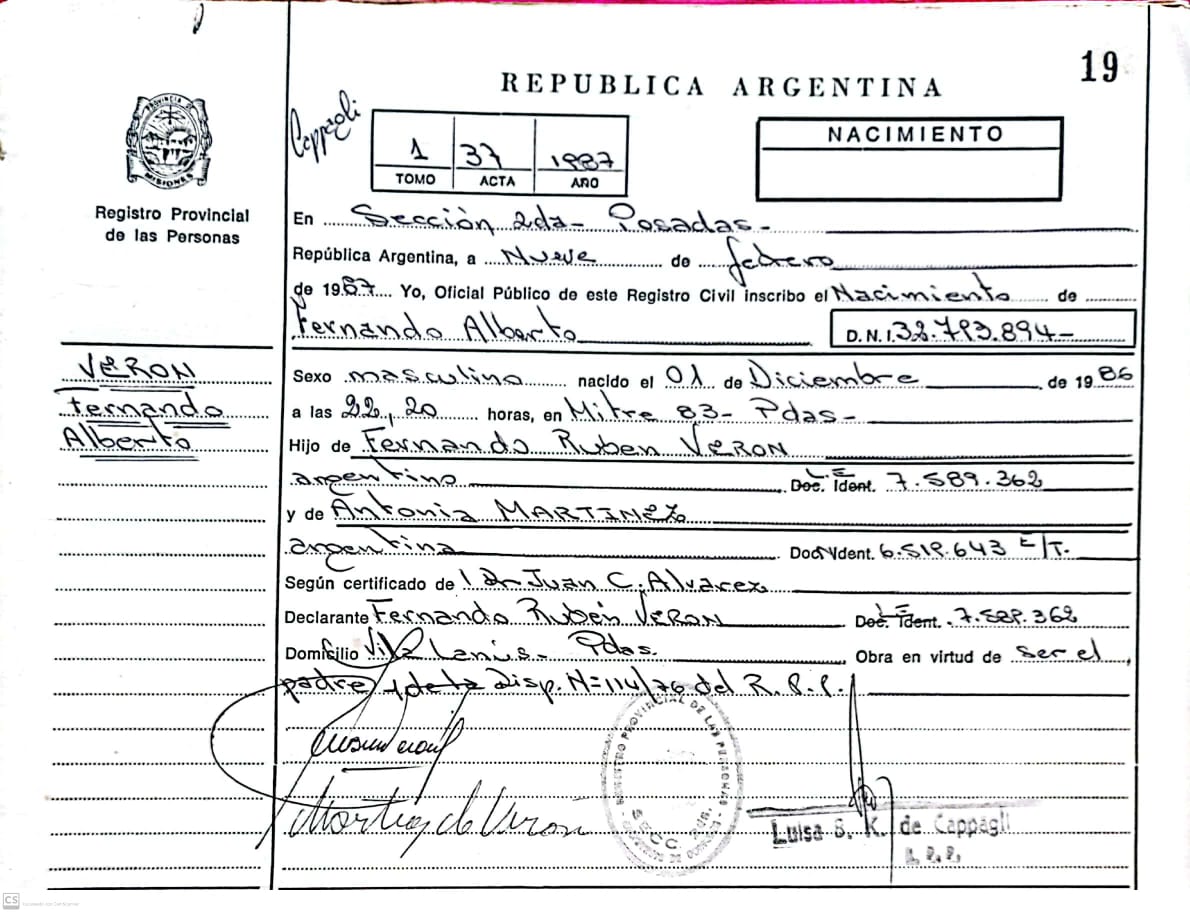 19
REPUBLICA ARGENTINA
Cappagli
NACIMIENTO
1 37 1987
TOMO ACTA AÑO
PROVINCIA DE MISIONES
Registro Provincial
de las Personas
En Sección 2da- Posadas-
República Argentina, a Nueve de febrero
de 1987 Yo, Oficial Público de este Registro Civil inscribo el Nacimiento de
Fernando Alberto D.N.I. 32.793.894-
VERON
Fernando
Alberto
Sexo masculino nacido el 01 de Diciembre de 1986
a las 22,20 horas, en Mitre 83- Pdas-
Hijo de Fernando Ruben VERON
argentino Doc. Ident. L.E. 7.589.362
y de Antonia MARTINEZ
argentina Doc. Ident. 6.519.643 E/T.
Según certificado de Dr Juan C. Alvarez
Declarante Fernando Ruben VERON Doc. Ident. L.E. 7.589.362
Domicilio Villa Lanús- Pdas. Obra en virtud de ser el
padre y de la Disp. N=114/76 del R.P.P.
Martinez de Verón
REGISTRO PROVINCIAL DE LAS PERSONAS
SECC. 2da.
Luisa S. K. de Cappagli